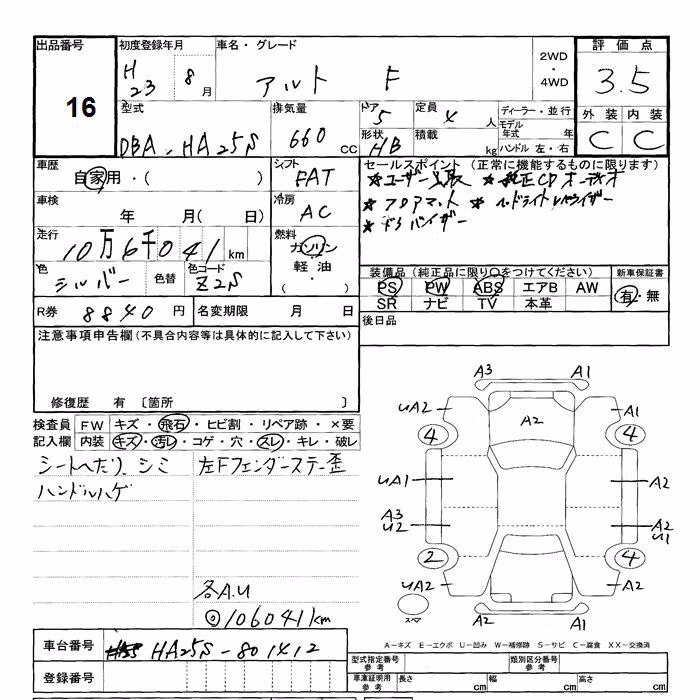 出品番号
16
初度登録年月
H
23 8月
車名・グレード
アルト F
2WD
・
4WD
評価点
3.5
外装 内装
C C
型式
DBA-HA25S
排気量
660 CC
ドア
5
形状
HB
定員
4 人
積載
kg
ディーラー・並行
モデル年式 年
ハンドル 左・右
車歴
自家用・( )
シフト
FAT
車検
年 月( 日)
冷房
AC
走行
10万6千041km
燃料
ガソリン
軽油・
( )
色
シルバー
色替
色コード
Z2S
R券 8840円
名変期限 月 日
セールスポイント (正常に機能するものに限ります)
★ユーザー買取 ★純正CDオーディオ
★フロアマット ★ヘッドライトレベライザー
★ドアバイザー
装備品(純正品に限り○をつけてください)
PS PW ABS エアB AW
SR ナビ TV 本革
新車保証書
有・無
後日品
注意事項申告欄(不具合内容等は具体的に記入して下さい)
修復歴 有 〔箇所 〕
検査員記入欄
FW キズ・飛石・ヒビ割・リペア跡・×要
内装 キズ・汚レ・コゲ・穴・スレ・キレ・破レ
シートへたり、シミ
ハンドルハゲ
左Fフェンダーステー歪
各A.U
◎106041km
A3 A1
UA2 A2 A1
4 4
UA1 A2
A3 A2
U2 U1
2 4
UA2 A2
スペア
A2 A1
A－キズ E－エクボ U－凹み W－補修跡 S－サビ C－腐食 XX－交換済
車台番号 HA25S-801412
登録番号
型式指定番号
参考
類別区分番号
参考
車庫証明用
参考
長さ cm
幅 cm
高さ cm